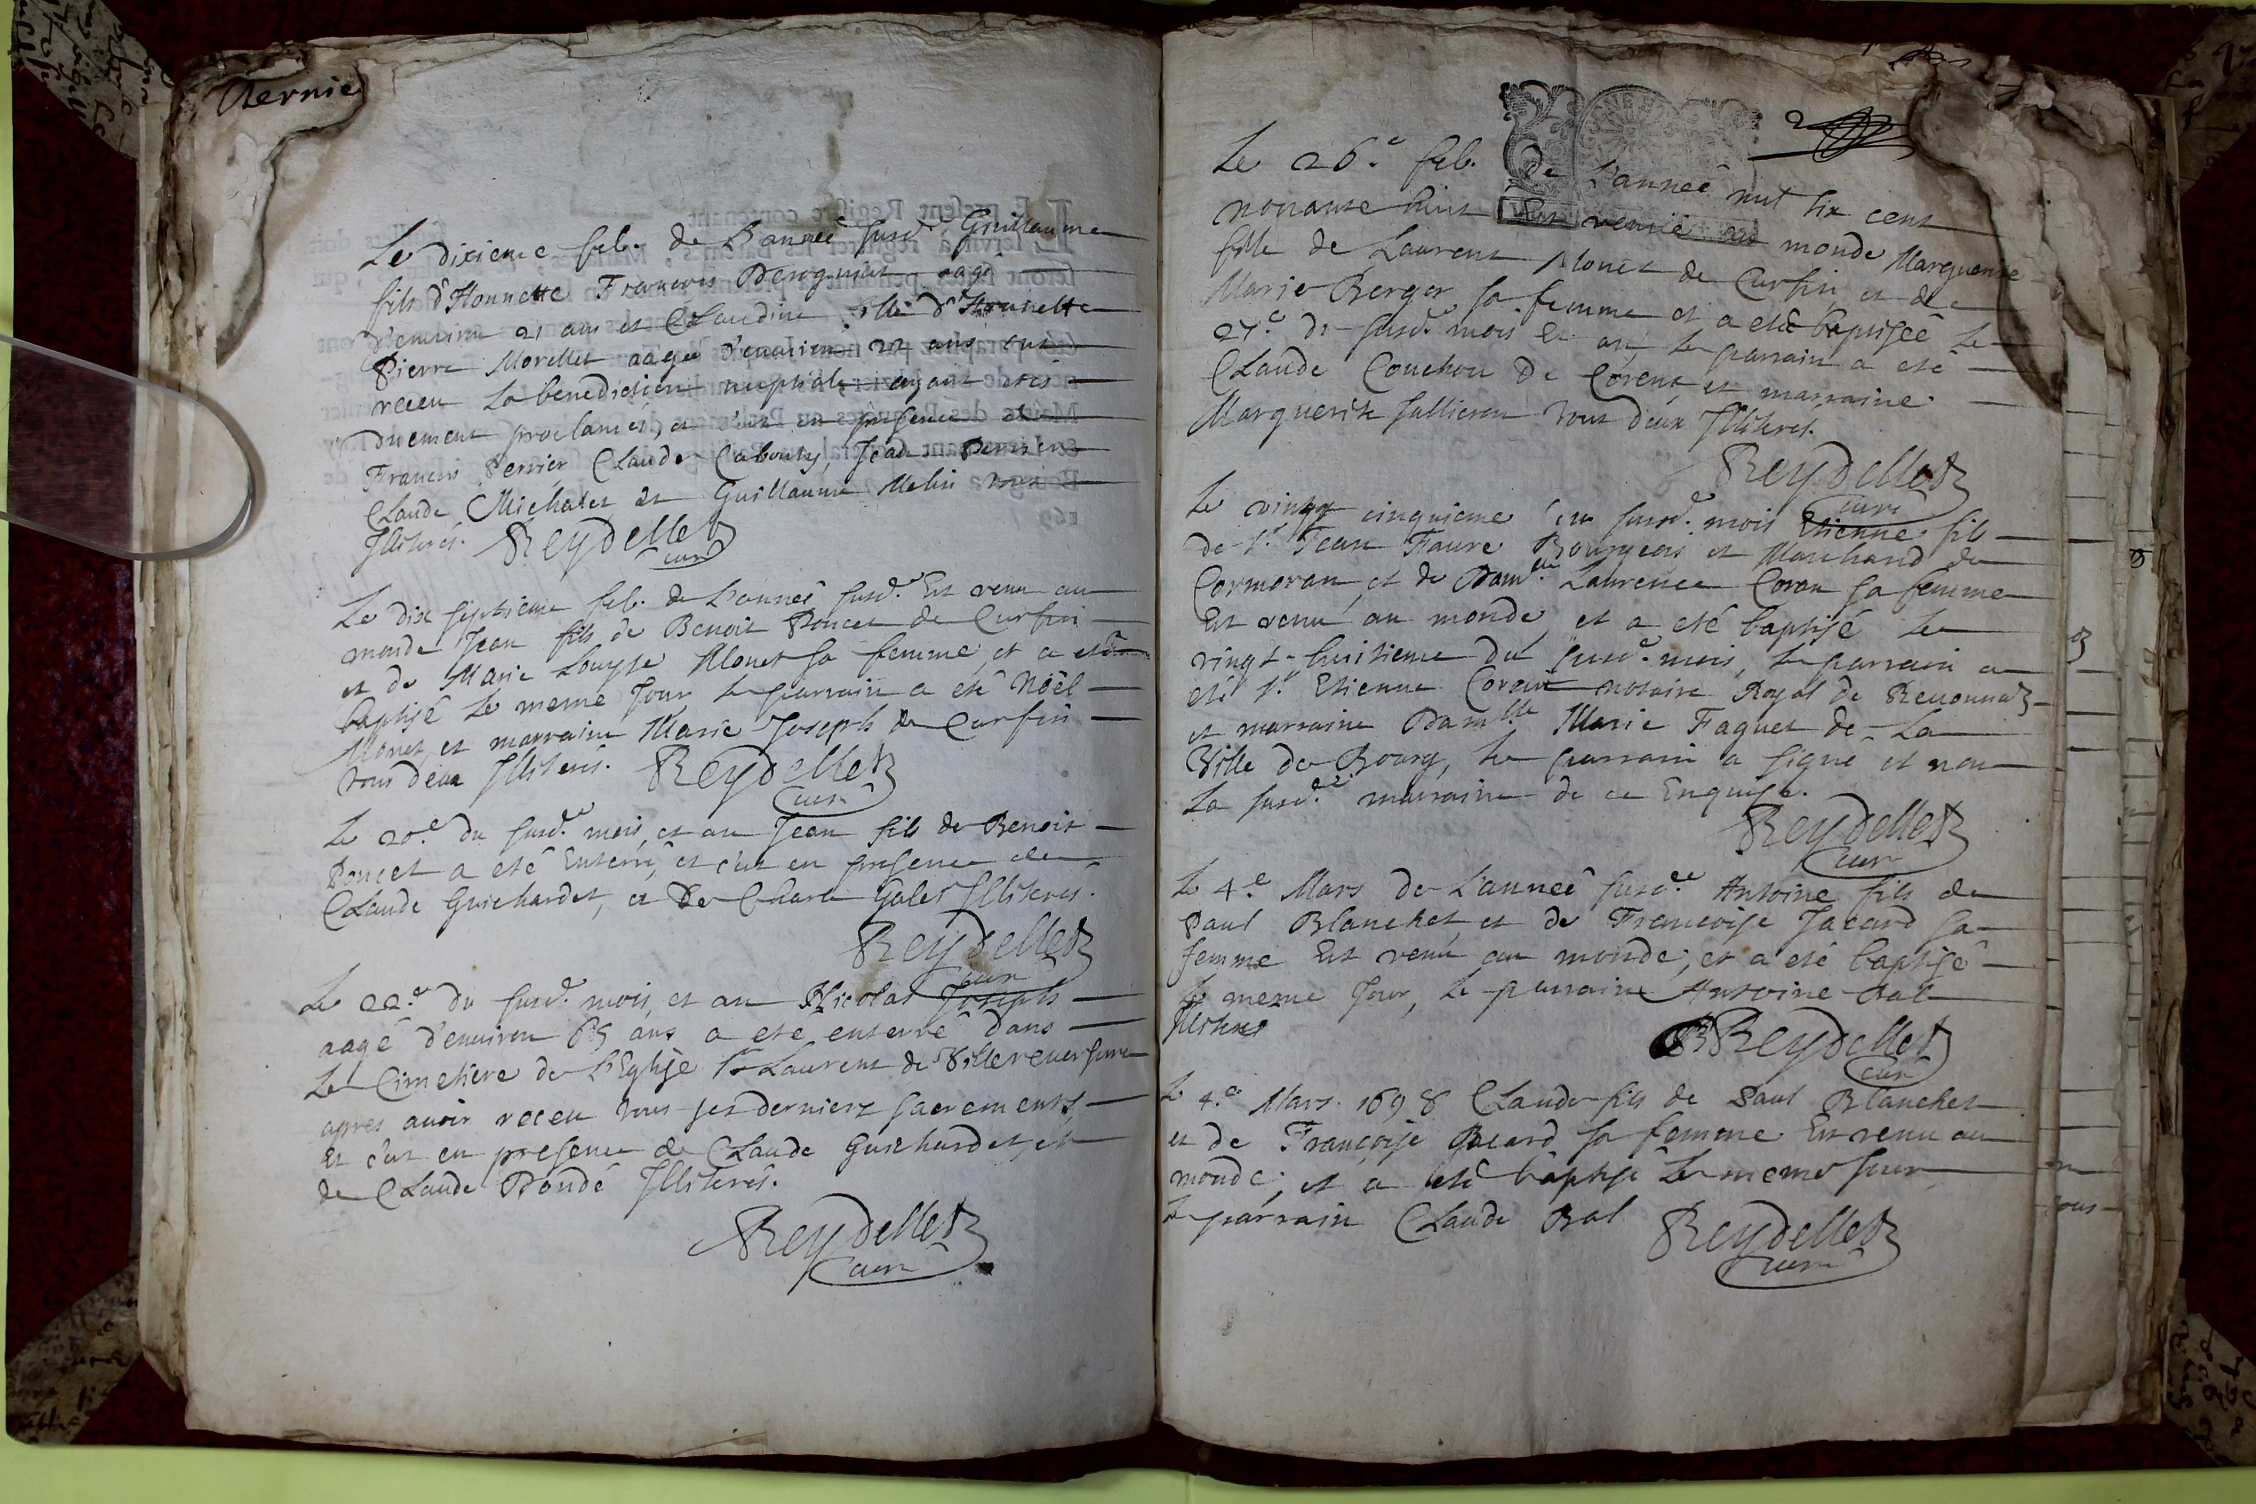 Dernie
Le dixieme feb. de L'année susd.e Guillaume
fils d'Honnette Francois aagé
d'environ 21 ans et Claudine fille d'Honnette
Pierre Morellet aagée d'environ 22 ans ont
receu la benediction nuptiale, ayant étés
duement proclamés, et c'est en presence de
Francois Perrier Claude Jean Perrier
Claude Michalet et Guillaume Melin tous
Illiterés. Reydellet
curé
Le dix septieme feb. de L'année susd.e Est venu au
monde Jean fils de Benoit Poncet de Curfin
et de Marie Louyse Monet sa femme, et a eté
baptisé le meme Jour le parrain a eté Noël
Monet, et marraine Marie Joseph de Curfin
tous deux Illiterés. Reydellet
curé
Le 20.e du susd.e mois, et an Jean fils de Benoit
Poncet a eté Enterré, et c'est en presence de
Claude Guichardet, et De Illiterés.
Reydellet
curé
Le 22.e du susd.e mois, et an Nicolas Joseph
aagé d'environ 65 ans a eté enterré dans
Le Cimetiere de L'Eglise St Laurent de Villereversure
apres avoir receu tous ses derniers sacrements,
Et c'est en presence de Claude Guichardet, et
de Claude Bondé Illiterés.
Reydellet
curé
2
Le 26.e feb. de L'année mil six cent
nonante huit Est venüe au monde Marguerite
fille de Laurent Monet de Curfin, et de
Marie Berger sa femme et a eté baptisée Le
27.e du susd.e mois et an, le parrain a eté
Claude Couchou De Corent et marraine
Marguerite tous deux Illiterés.
Reydellet
curé
Le vingt cinquieme du susd.e mois Etienne fils
de Sr. Jean Faure Bourgeois et Marchand de
Cormoran, et de Dam.lle Laurence Coran sa femme
Est venu au monde, et a eté baptisé Le
vingt-huitieme du susd.e mois, Le parrain a
eté Sr. Etienne Coran notaire Royal de Revonnas
et marraine Damlle Marie Faguet de La
Ville de Bourg, Le parrain a signé et non
La susd.e marraine de ce Enquise.
Reydellet
curé
Le 4.e Mars de L'année susd.e Antoine fils de
Paul Blanchet, et de Francoise Jacard sa
femme Est venu au monde, et a eté baptisé
Le meme Jour, Le parrain Antoine Bal
Illiterés
Reydellet
curé
Le 4.e Mars 1698 Claude fils de Paul Blanchet
et de Françoise sa femme Est venu au
monde, et a eté baptisé Le meme Jour
Le parrain Claude Bal Reydellet
curé